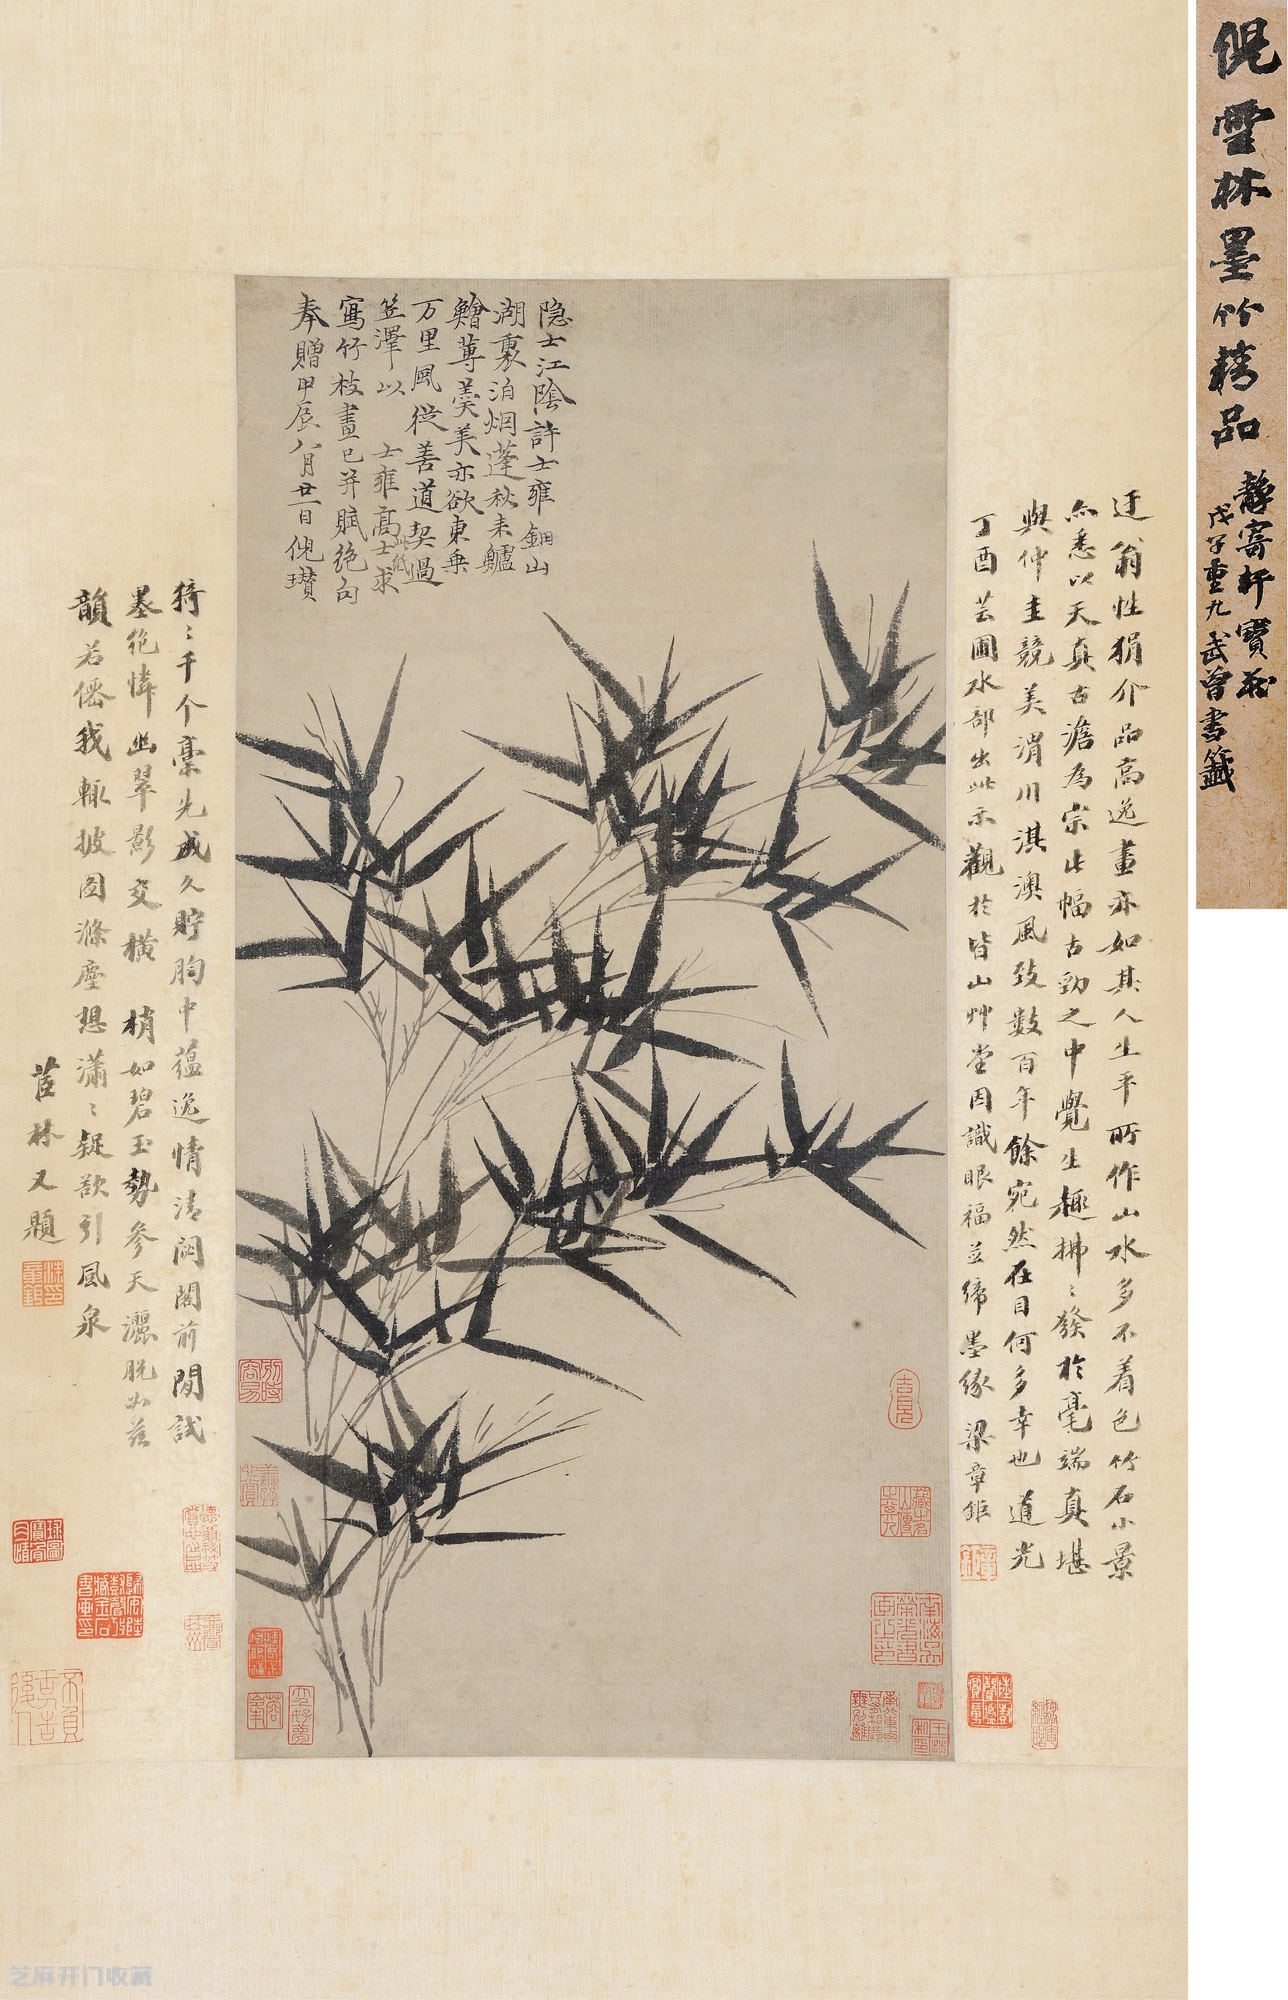 倪雲林墨竹精品
靜寄軒寶藏
戊子重九武曾書籤
隐士江陰許士雍錮山
湖裏泊烟蓬秋来鱸
鱠蓴羮美亦欲東乗
万里風從善道契過
笠澤以 士雍高士求
此紙
寫竹枝畫已并賦絶句
奉贈甲辰八月廿一日倪瓚
迂翁性狷介品高逸畫亦如其人生平所作山水多不着色竹石小景
亦悉以天真古澹為宗此幅古勁之中覺生趣拂〻發於毫端真堪
與仲圭競美渭川淇澳風致數百年餘宛然在目何多幸也道光
丁酉芸圃水部出此示觀於皆山艸堂因識眼福並締墨緣 梁章鉅
猗〻千个稾先成久貯胸中蕴逸情清閟閣前閒試
墨絶憐幽翠影交横 梢如碧玉勢參天灑脱如兹
韻若僊我輒披圖滌塵想瀟〻疑欲引風泉
茝林又題
芝麻开门收藏